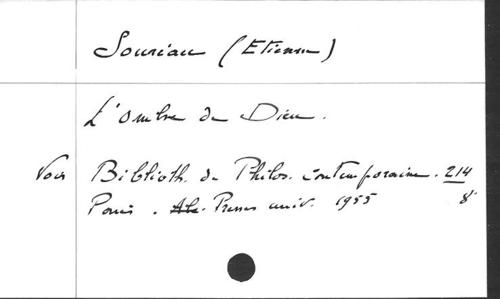 Souriau (Etienne)
L'Ombre de Dieu.
Voir Biblioth. de Philos. contemporaine. 214
Paris. Alc. Presses univ. 1955 8°